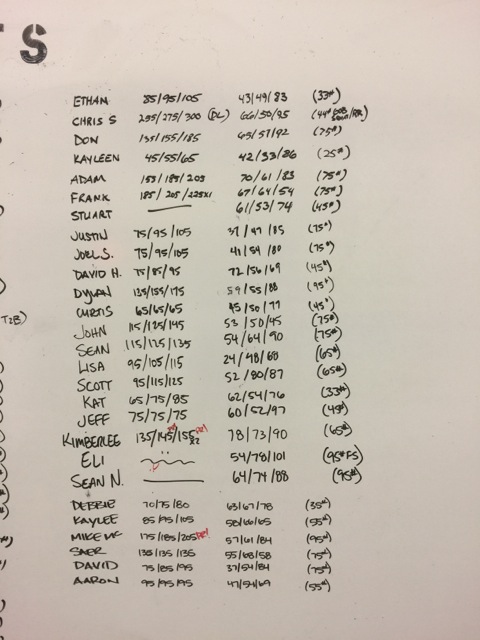 S
ETHAN 85/95/105 43/49/83 (33#)
CHRIS S 255/275/300 (DL) 66/50/95 (44#
DON 135/155/185 45/57/92 (75#)
KAYLEEN 45/55/65 42/33/86 (25#)
ADAM 155/185/205 70/61/83 (75#)
FRANK 185/205/225x1 67/64/54 (75#)
STUART 61/53/74 (45#)
JUSTIN 75/95/105 37/47/85 (75#)
JOEL S. 75/95/105 41/54/80 (75#)
DAVID H. 75/85/95 72/56/69 (45#)
DYLAN 135/155/175 59/55/88 (95#)
CURTIS 65/65/65 45/50/77 (45#)
T2B)
JOHN 115/125/145 53/50/45 (75#)
SEAN 115/125/135 54/64/90 (75#)
LISA 95/105/115 24/48/68 (65#)
SCOTT 95/115/125 52/80/87 (65#)
KAT 65/75/85 62/54/76 (33#)
JEFF 75/75/75 60/52/97 (45#)
KIMBERLEE 135/145/155 x2 78/73/90 (65#)
ELI 54/78/101 (95# FS)
SEAN N. 64/74/88 (95#)
DEBBIE 70/75/80 63/67/78 (35#)
KAYLEE 85/95/105 58/66/65 (55#)
MIKE MC 175/185/205 PR! 57/61/84 (95#)
SAER 135/135/135 55/68/58 (75#)
DAVID 75/85/95 37/54/84 (75#)
AARON 95/95/95 47/54/69 (55#)